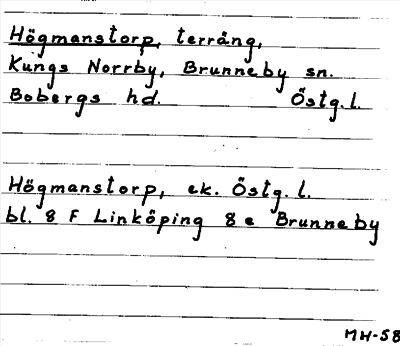 Högmanstorp, terräng,
Kungs Norrby, Brunneby sn.
Bobergs hd. Östg.l.
Högmanstorp, ek. Östg.l.
bl. 8 F Linköping 8 e Brunneby
MH-58